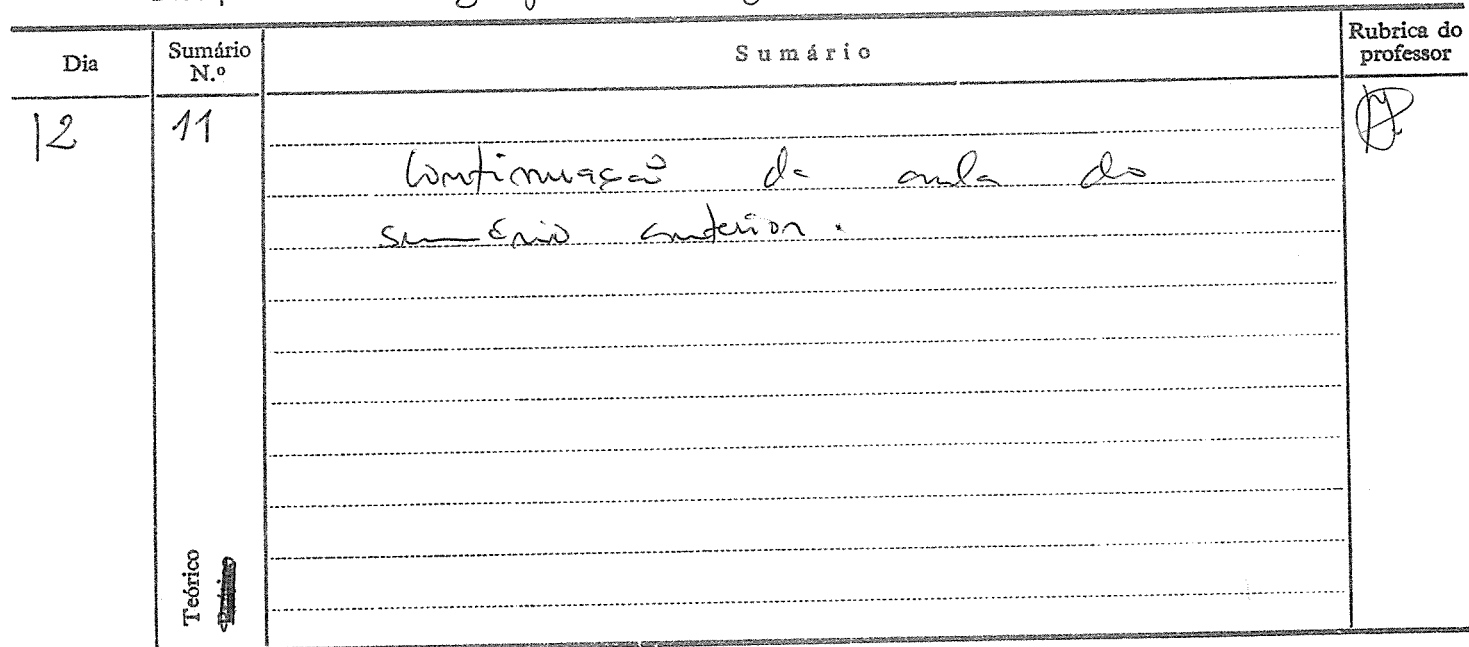 Dia
Sumário N.º
Sumário
Rubrica do professor
12
11
Continuação da aula do
sumário anterior.
Teórico